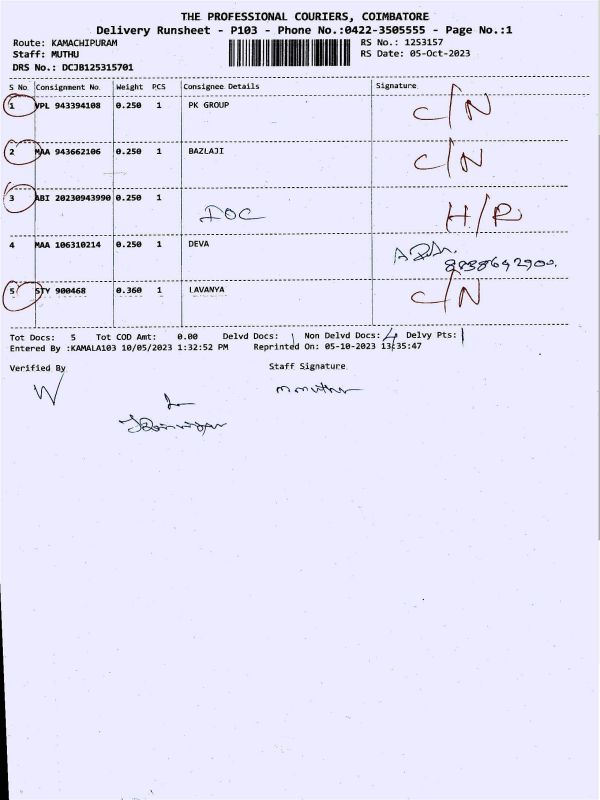 THE PROFESSIONAL COURIERS, COIMBATORE
Delivery Runsheet - P103 - Phone No.:0422-3505555 - Page No.:1
Route: KAMACHIPURAM RS No.: 1253157
Staff: MUTHU RS Date: 05-Oct-2023
DRS No.: DCJB125315701
S No. Consignment No. Weight PCS Consignee Details Signature
1 VPL 943394108 0.250 1 PK GROUP C/N
2 MAA 943662106 0.250 1 BAZLAJI C/N
3 ABI 20230943990 0.250 1 DOC H/R
4 MAA 106310214 0.250 1 DEVA
5 STY 900468 0.360 1 LAVANYA C/N
Tot Docs: 5 Tot COD Amt: 0.00 Delvd Docs: 1 Non Delvd Docs: 4 Delvy Pts: 1
Entered By :KAMALA103 10/05/2023 1:32:52 PM Reprinted On: 05-10-2023 13:35:47
Verified By Staff Signature